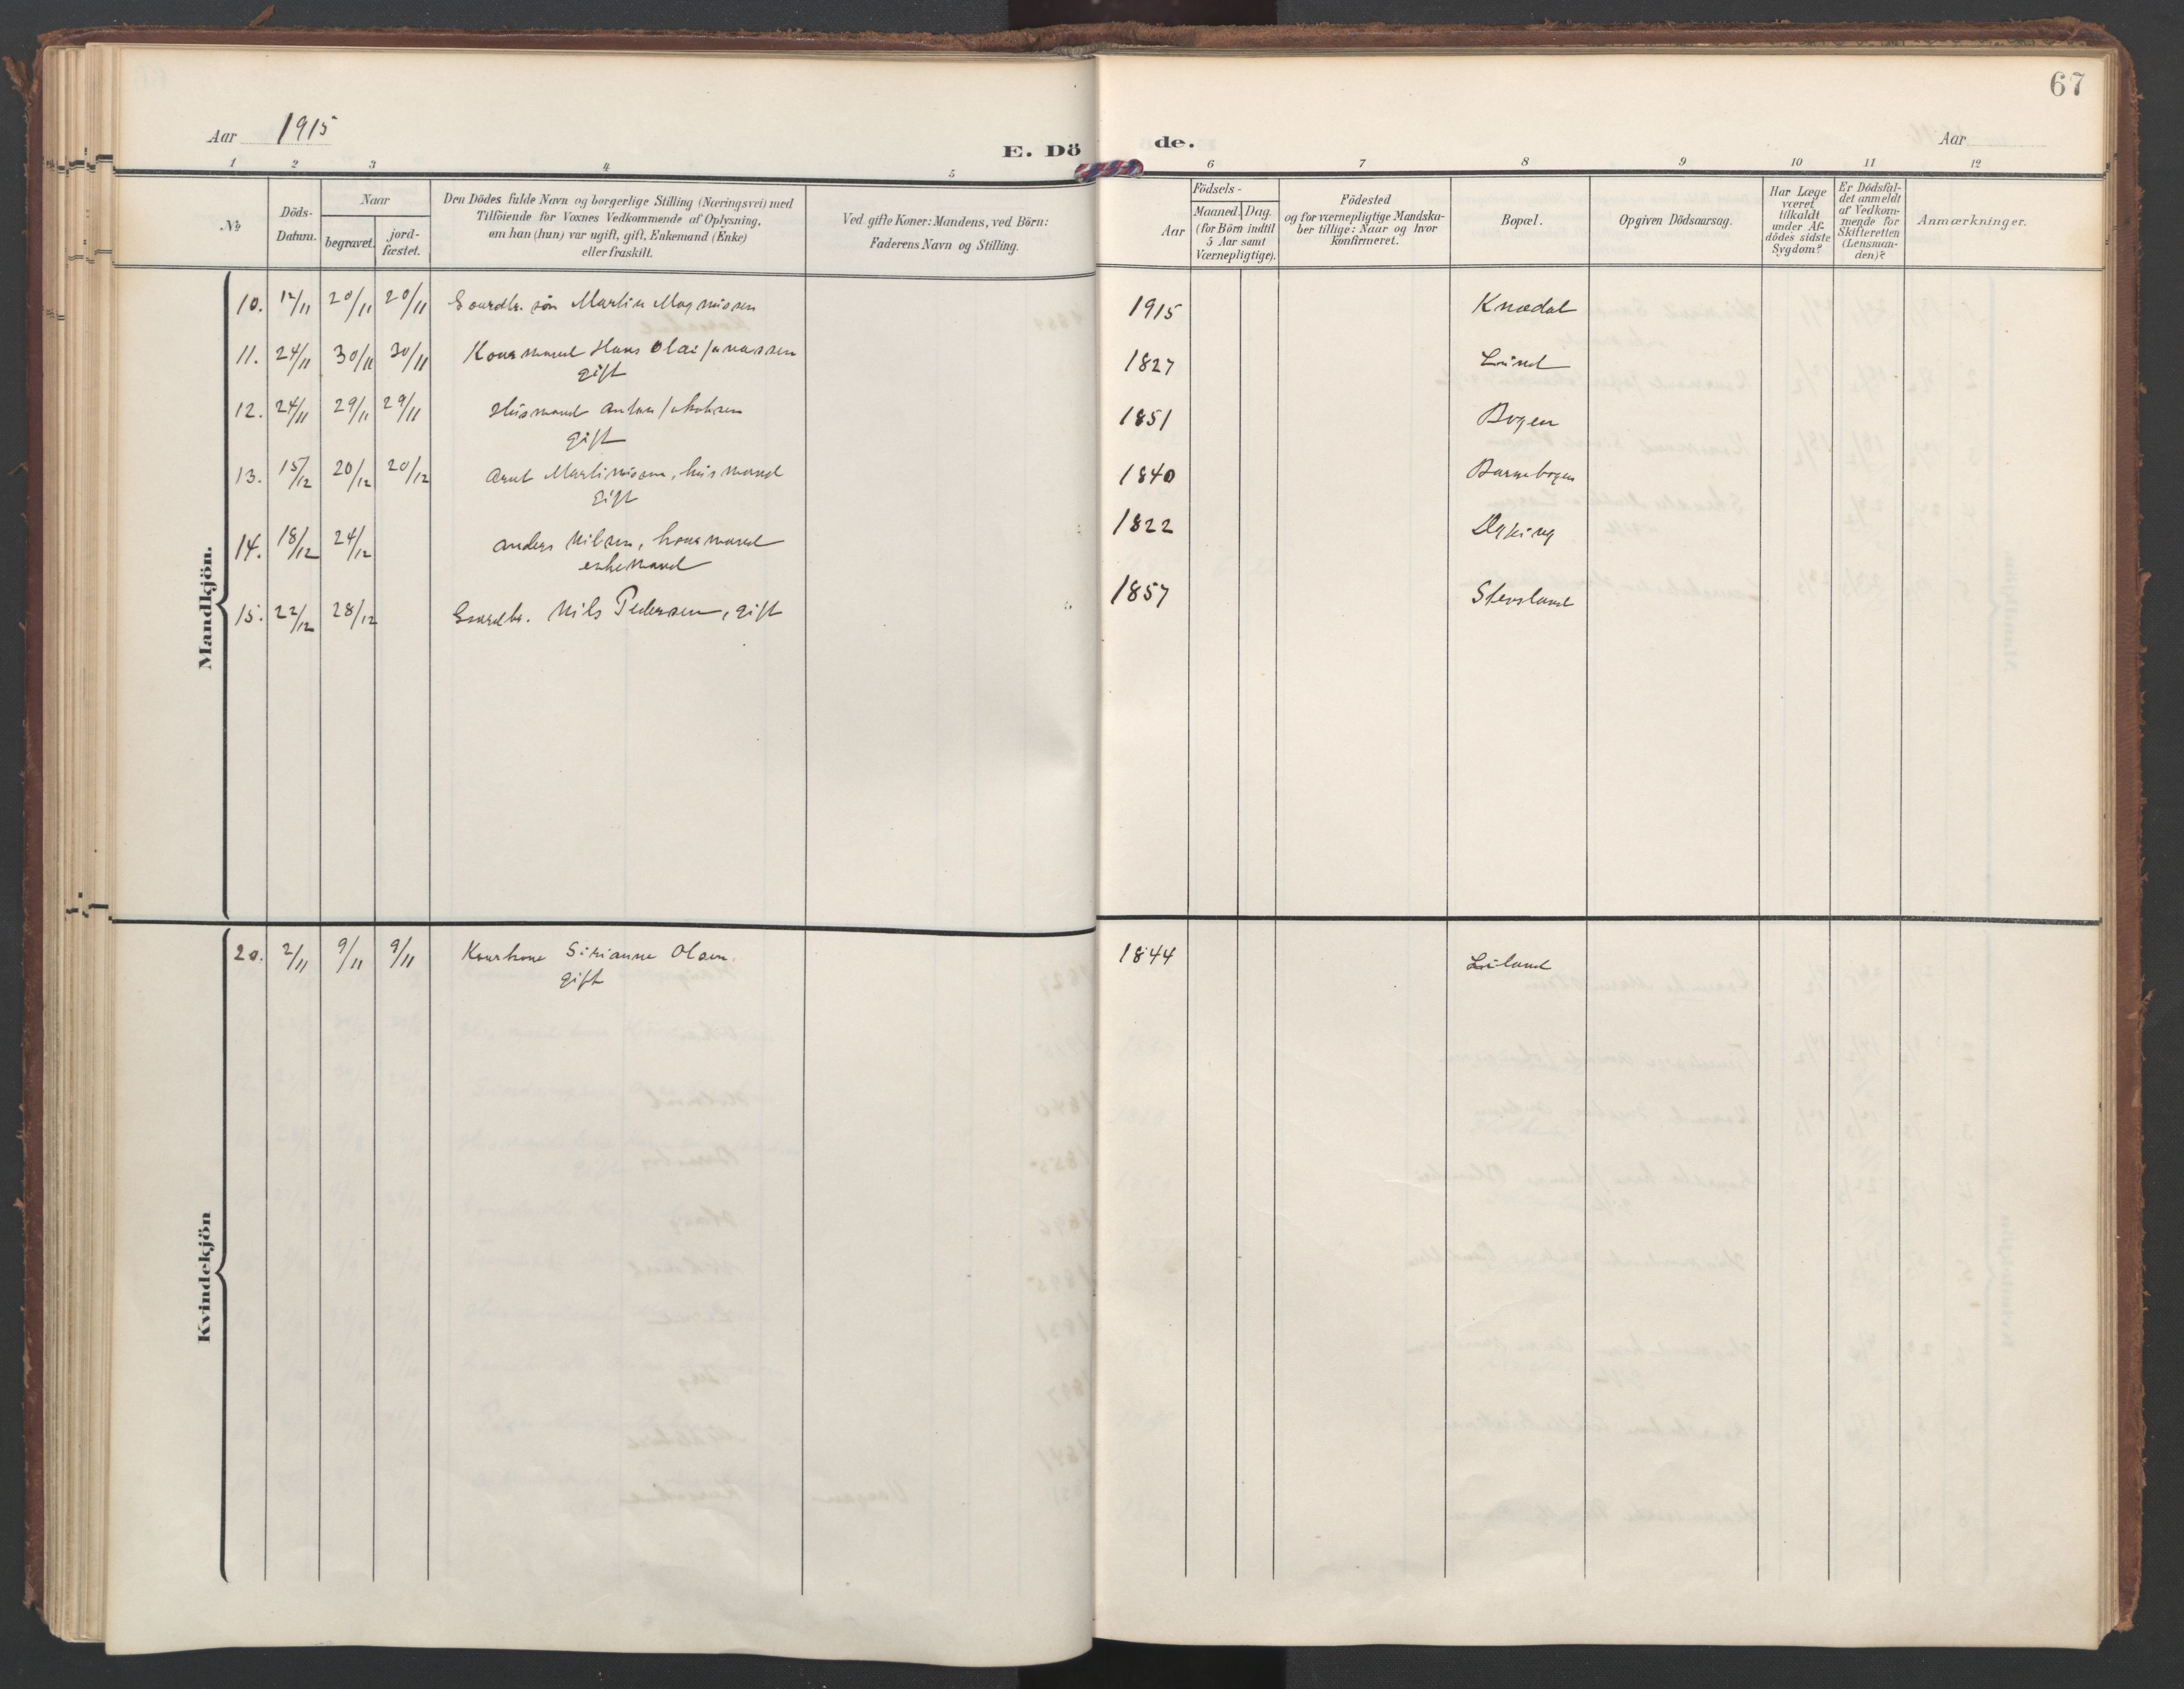 67
Aar 1915
E. Dö de.
Aar
1 2 3 4 5 6 7 8 9 10 11 12
№
Döds-
Datum.
Naar
begravet.
jord-
fæstet.
Den Dödes fulde Navn og borgerlige Stilling (Næringsvei) med
Tilföiende for Voxnes Vedkommende af Oplysning,
om han (hun) var ugift, gift, Enkemand (Enke)
eller fraskilt.
Ved gifte Koner: Mandens, ved Börn:
Faderens Navn og Stilling.
Födsels-
Aar
Maaned. Dag.
(for Börn indtil
5 Aar samt
Værnepligtige).
Födested
og for værnepligtige Mandska-
ber tillige: Naar og hvor
konfirmeret.
Bopæl.
Opgiven Dödsaarsag.
Har Læge
været
tilkaldt
under Af-
dödes sidste
Sygdom?
Er Dödsfal-
det anmeldt
af Vedkom-
mende for
Skifteretten
(Lensman-
den)?
Anmærkninger.
Mandkjön.
10. 12/11 20/11 20/11 Gaardbr. sön Martin Magnussen 1915 Knædal
11. 24/11 30/11 30/11 Kaarmand Hans Olai Jonassen 1827 Lund
gift
12. 24/11 29/11 29/11 Husmand Anton Jakobsen 1851 Bogen
gift
13. 15/12 20/12 20/12 Arnt Martinissen, husmand 1840 Barnebogen
gift
14. 18/12 24/12 Anders Nilsen, kaarmand 1822
enkemand
15. 22/12 28/12 Gaardbr. Nils Pedersen, gift 1857 Stensland
Kvindekjön
20. 2/11 9/11 9/11 Kaarkone Sirianne Olsen. 1844 Liland
gift